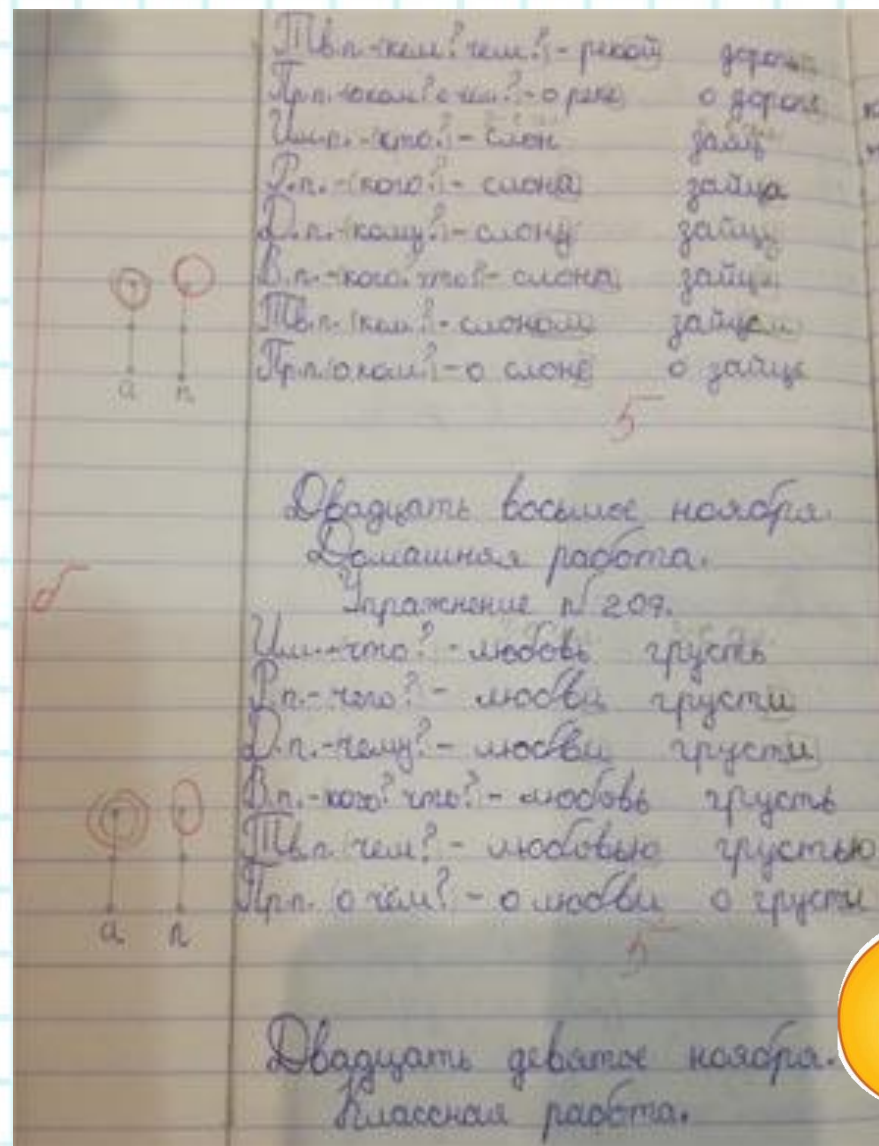 Тв.п.-(кем? чем?)-рекой дорогой
Пр.п.-(о ком? о чём?)-о реке о дороге
Им.п.-(кто?)-слон заяц
Р.п.-(кого?)-слона зайца
Д.п.-(кому?)-слону зайцу
В.п.-(кого? что?)-слона зайца
Тв.п.(кем?)-слоном зайцем
Пр.п.(о ком?)-о слоне о зайце
а п
5
Двадцать восьмое ноября.
Домашняя работа.
Упражнение №209.
Им.-что? - любовь грусть
Р.п.-чего? - любви грусти
Д.п.-чему? - любви грусти
В.п.-кого? что? - любовь грусть
Тв.п.(чем? - любовью грустью
Пр.п.(о чём? - о любви о грусти
а п
5
Двадцать девятое ноября.
Классная работа.